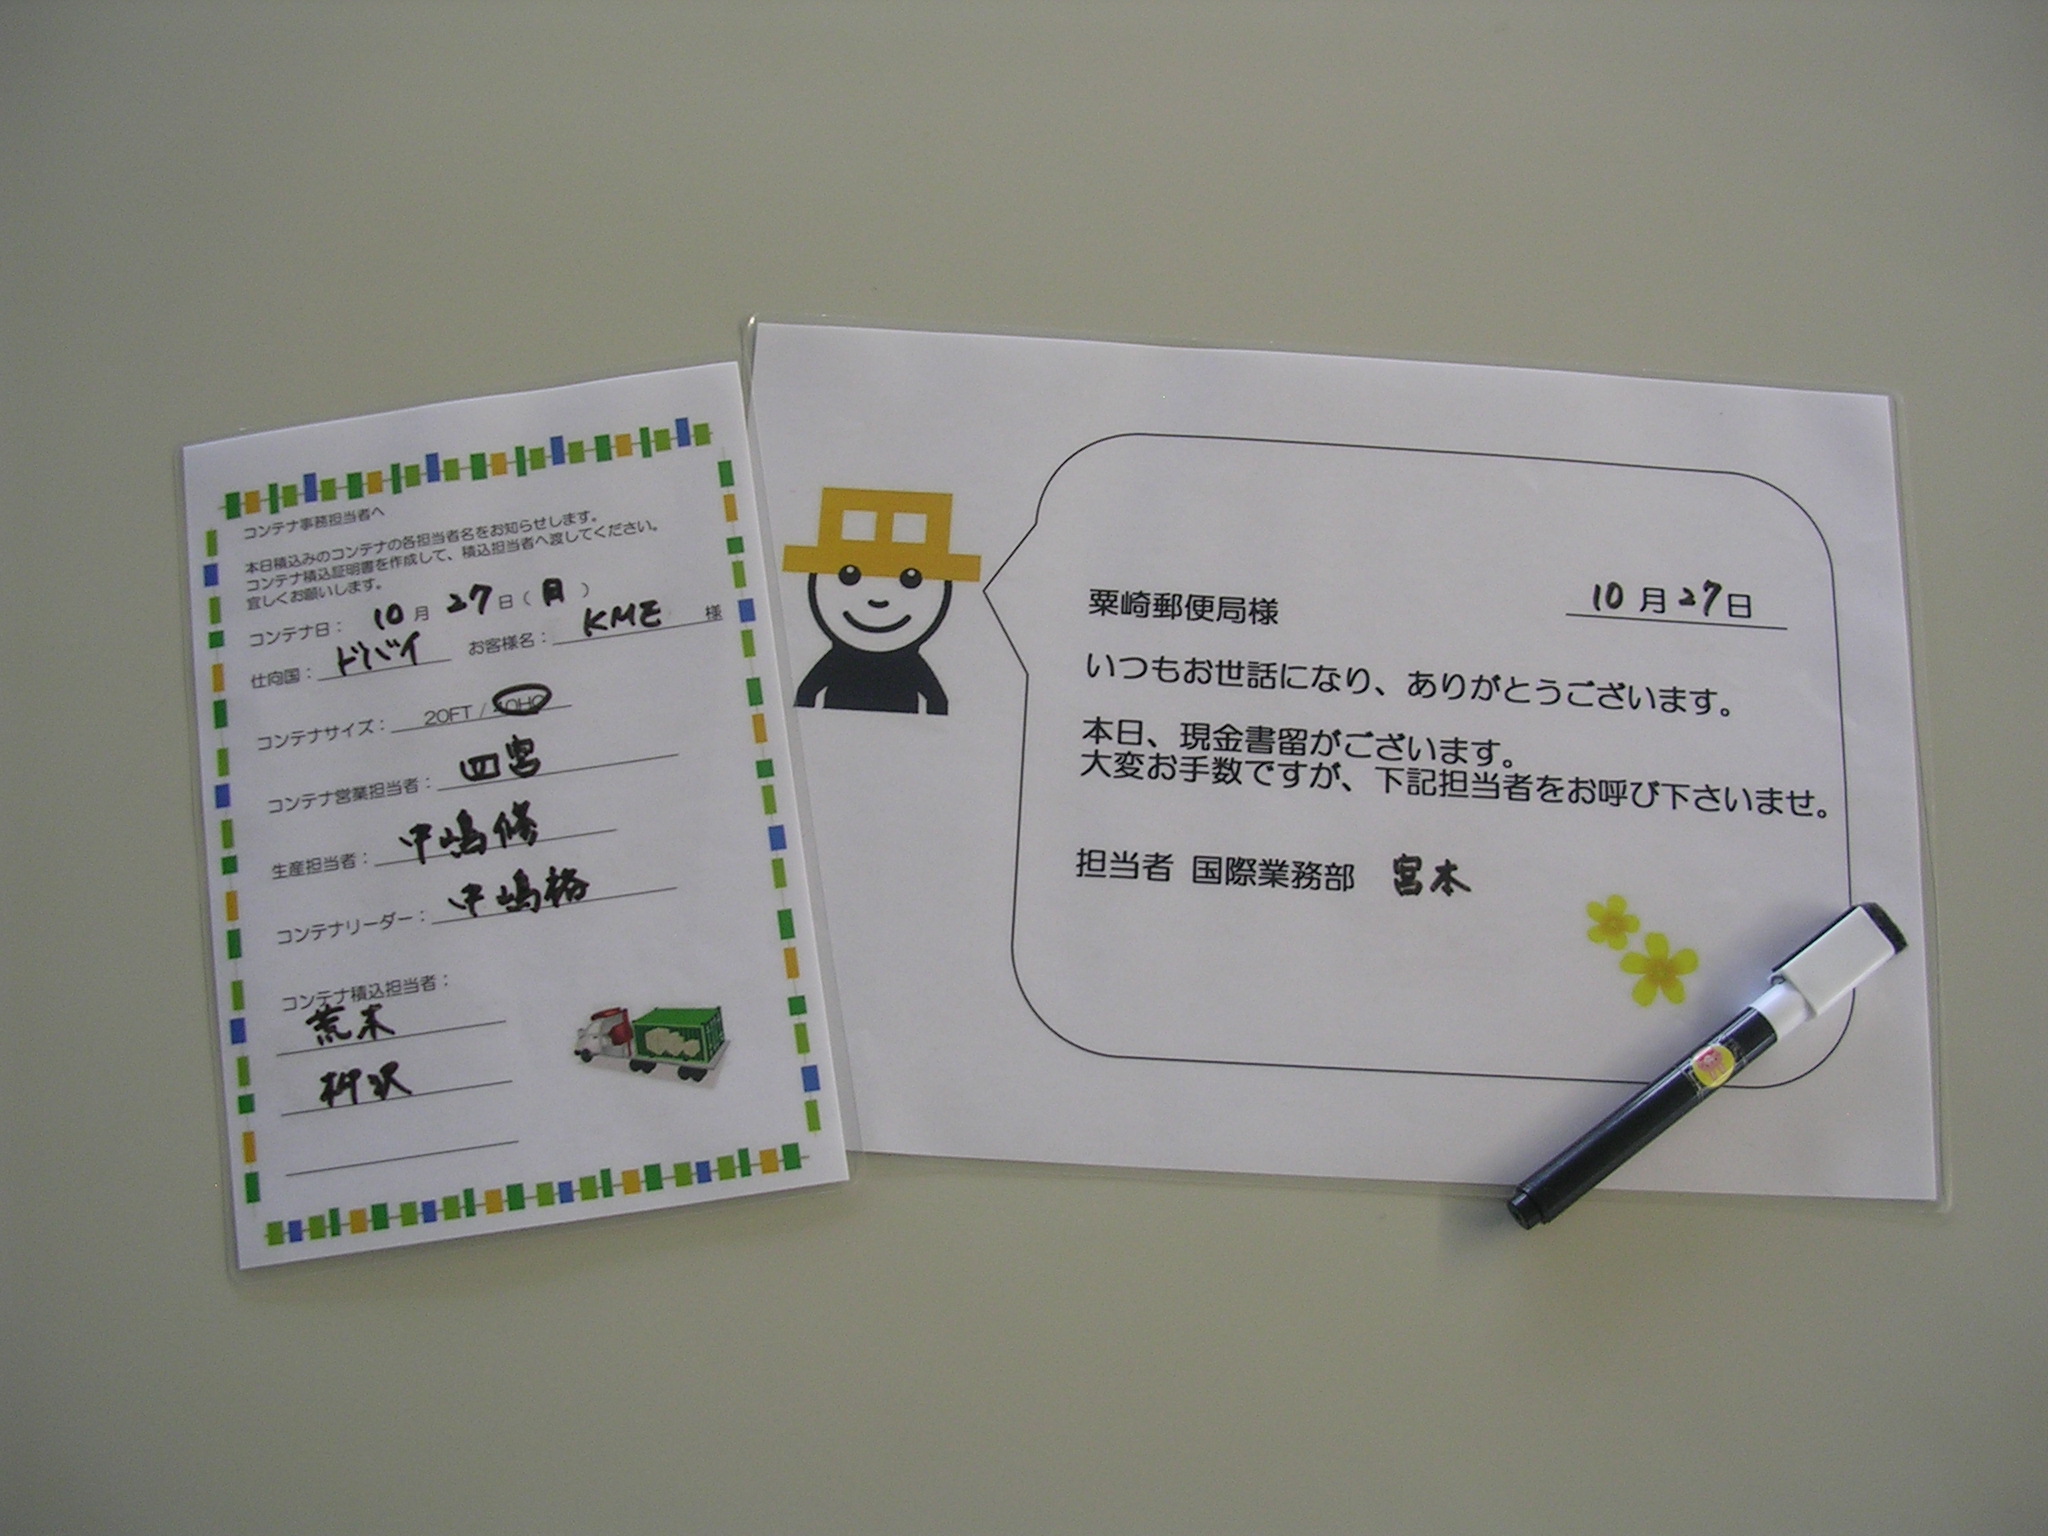 コンテナ事務担当者へ
本日積込みのコンテナの各担当者名をお知らせします。
コンテナ積込証明書を作成して、積込担当者へ渡してください。
宜しくお願いします。
コンテナ日： 10月 27日（月）
仕向国： ドバイ お客様名： KME 様
コンテナサイズ： 20FT / 40HC
コンテナ営業担当者： 四宮
生産担当者： 中嶋修
コンテナリーダー： 中嶋格
コンテナ積込担当者：
荒木
柳沢
10月27日
粟崎郵便局様
いつもお世話になり、ありがとうございます。
本日、現金書留がございます。
大変お手数ですが、下記担当者をお呼び下さいませ。
担当者 国際業務部 宮本